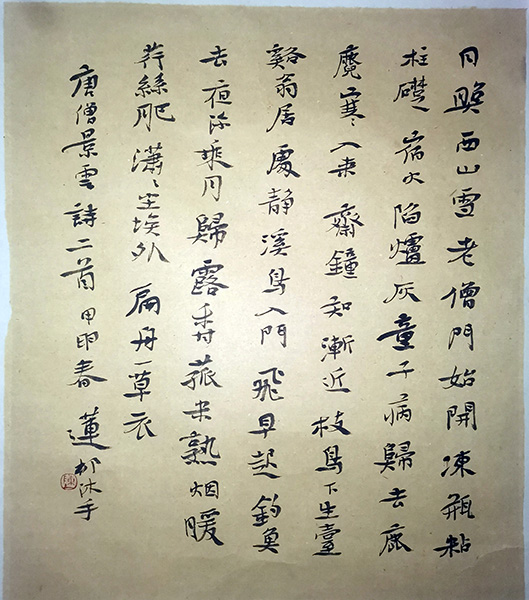 日暎西山雪老僧門始開凍瓶粘
柱礎宿火陷爐灰童子病歸去鹿
麑寒入来齋鐘知漸近枝鳥下生臺
谿翁居處静溪鳥入門飛早起釣魚
去夜深乘月歸露香菰米熟烟暖
荇絲肥瀟〻塵埃外扁舟一草衣
唐僧景雲詩二首 甲申春 蓮邨沐手